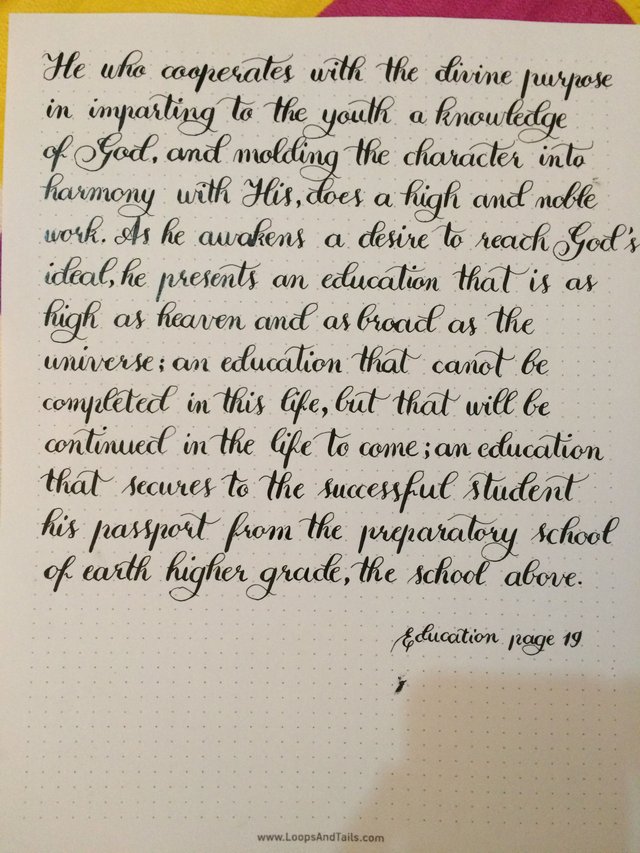 He who cooperates with the divine purpose
in imparting to the youth a knowledge
of God, and molding the character into
harmony with His, does a high and noble
work. As he awakens a desire to reach God's
ideal, he presents an education that is as
high as heaven and as broad as the
universe; an education that canot be
completed in this life, but that will be
continued in the life to come; an education
that secures to the successful student
his passport from the preparatory school
of earth higher grade, the school above.
Education page 19
www.LoopsAndTails.com